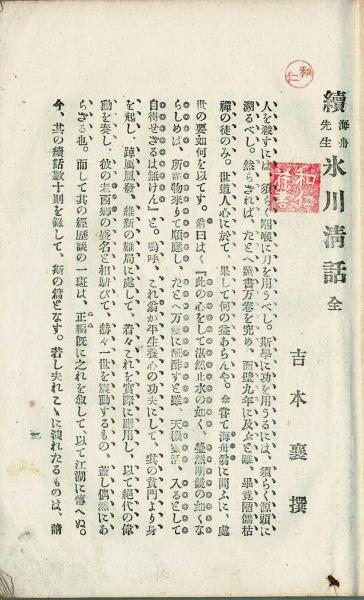 續海舟先生氷川清話 全
吉本襄撰
人を殺すには、須らく咽喉に刀を用うべし。斯學に功を用うるには、須らく源頭に
溯るべし。然らざれば、たとへ讀書万卷を究め、面壁九年に及ぶと雖、畢竟陋儒枯
禪の徒のみ。世道人心に於て、果して何の益あらんや。余嘗て海舟翁に問ふに、處
世の要如何を以てす。翁曰はく『此の心をして湛然止水の如く、瑩然明鏡の如くな
らしめば、所謂物來りて順應し、たとへ万變に酬酢すと雖、天機靈活、入るとして
自得せざるは無けん』と。嗚呼、これ翁が平生養心の功夫にして、其の貧門より身
を起し、踔厲風發、維新の難局に處して、着々これを實際に應用し、以て絶代の偉
勳を奏し、彼の老西郷の盛名と相馳びて、赫々一世を震動するもの、蓋し偶然にあ
らざる也。而して其の經歴談の一斑は、正編既に之れを叙して、以て江湖に傳へぬ。
今、其の續話數十則を録して、斯の篇となす。若し夫れこゝに洩れたるものは、請
和仁